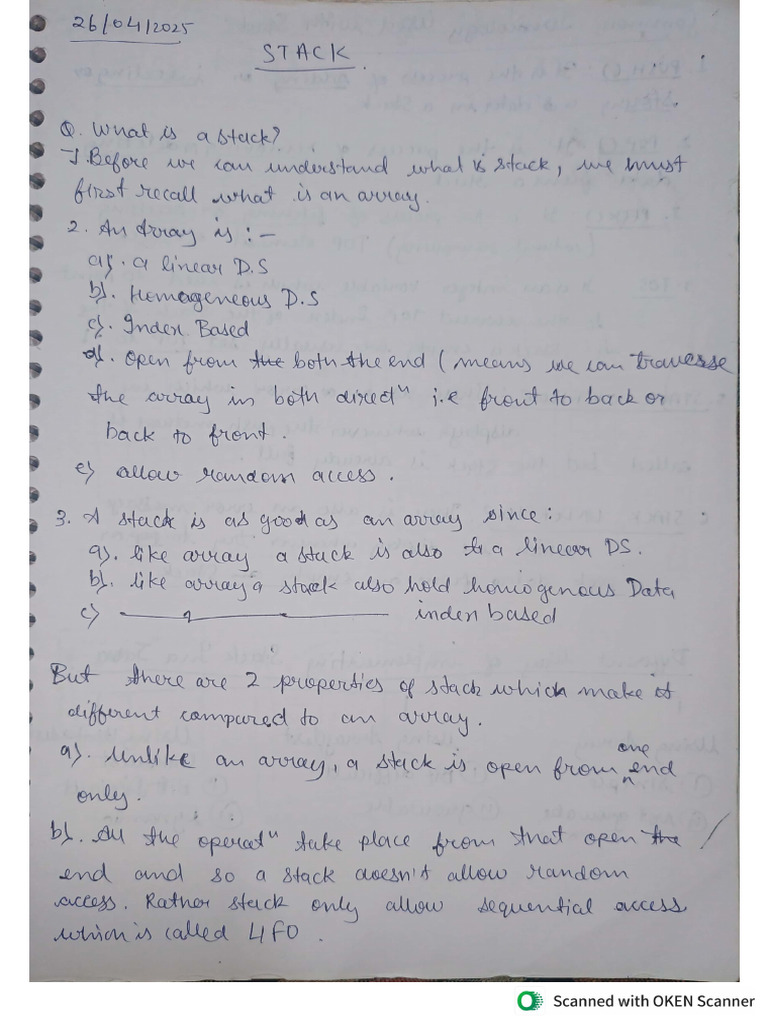 26/04/2025
STACK.
Q. What is a stack?
→ 1. Before we can understand what is stack, we must
first recall what is an array.
2. An Array is :-
a). a linear D.S
b). Homogeneous D.S
c). Index Based
d). open from the both the end ( means we can traverse
the array in both directⁿ i.e front to back or
back to front.
e) allow random access.
3. A stack is as good as an array since:
a). like array a stack is also a linear DS.
b). like array a stack also hold homogenous Data
c) —————〃————— index based
But there are 2 properties of stack which make it
different compared to an array.
a). Unlike an array, a stack is open from one end
only.
b). All the operatⁿ take place from that open the
end and so a stack doesn't allow random
access. Rather stack only allow sequential access
which is called LIFO.
Scanned with OKEN Scanner